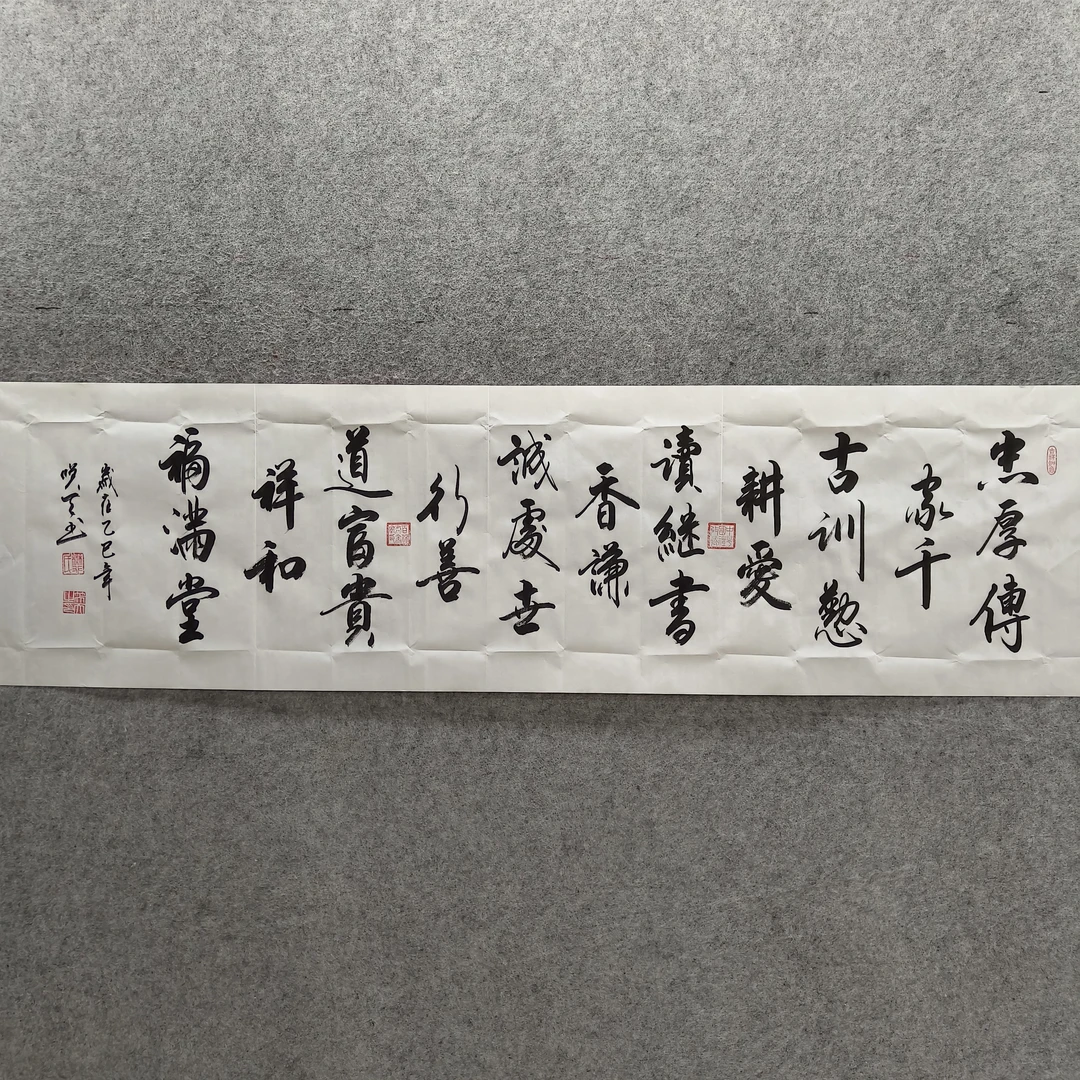 忠厚傳
家千
古訓勤
耕愛
讀繼書
香謙
誠處世
行善
道富貴
祥和
福滿堂
歲在乙巳年